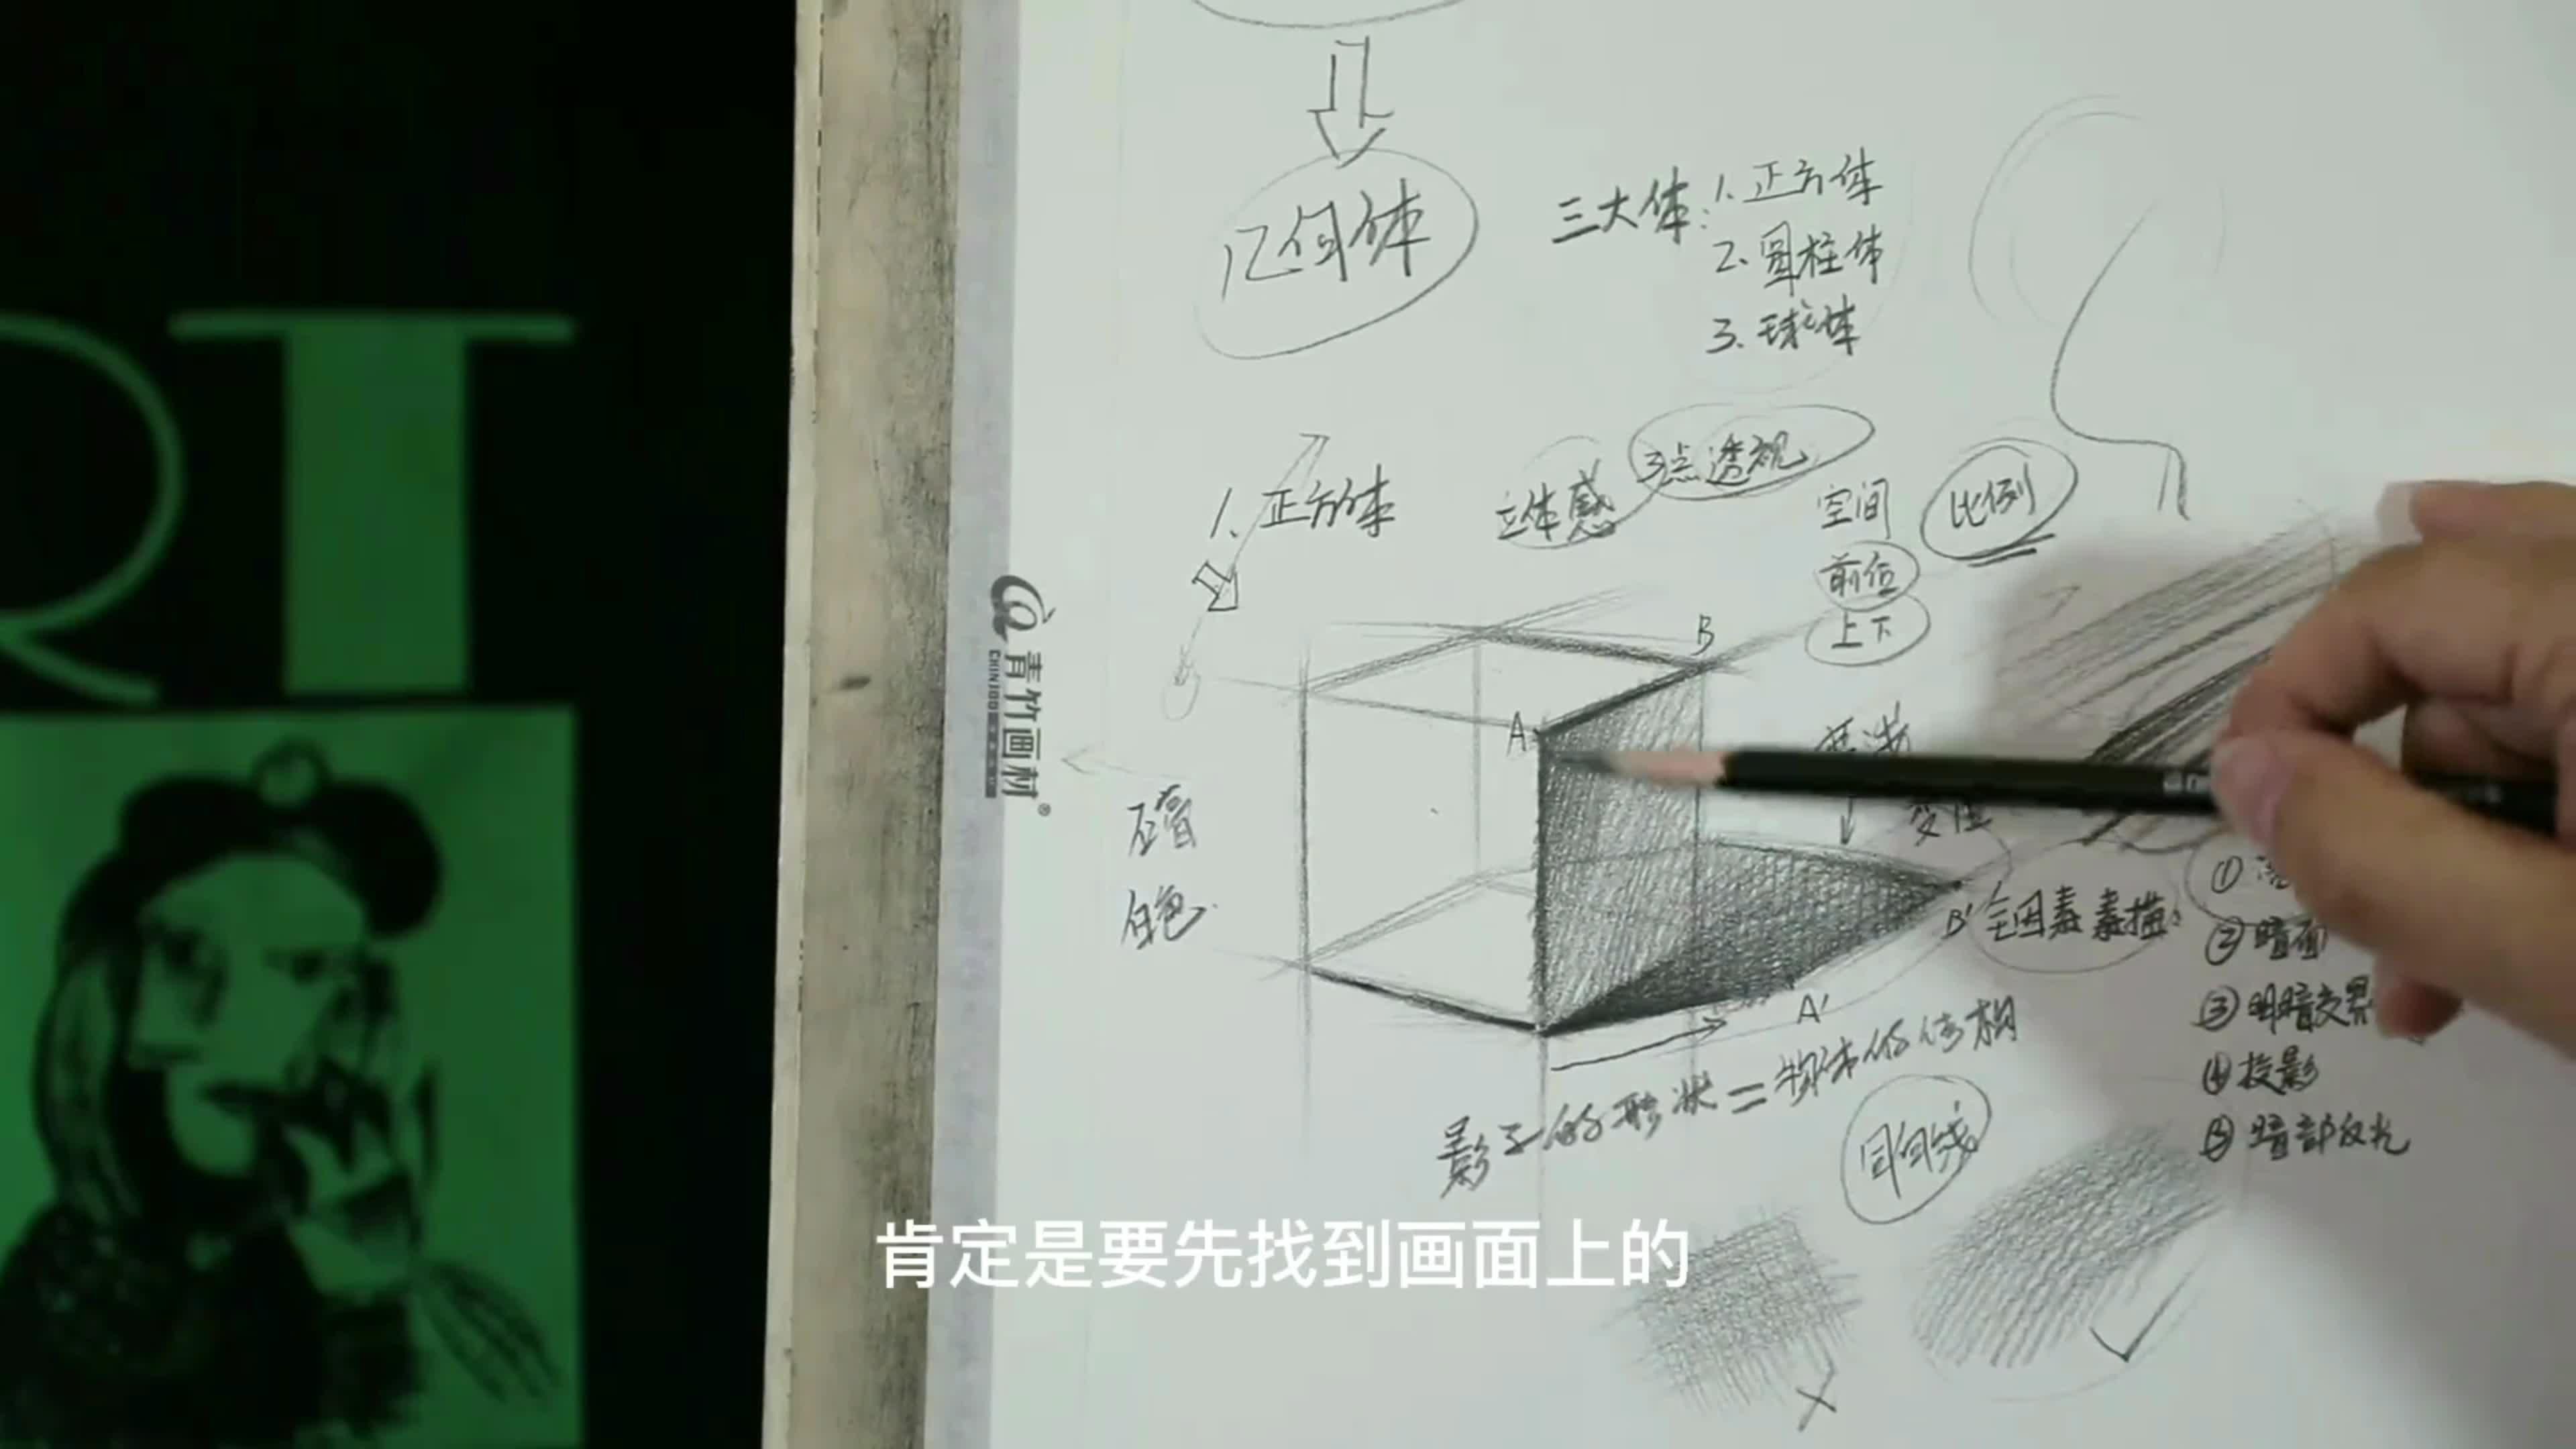 RT
几何体
三大体: 1. 正方体
2. 圆柱体
3. 球体
1. 正方体
立体感
3点透视
空间
比例
前后
上下
B
A
青竹画材®
CHINJOO
石膏
白色
B'
全因素素描
①
② 暗面
③ 明暗交界
④ 投影
⑤ 暗部反光
A'
影子的形状=物体的结构
同向线
肯定是要先找到画面上的